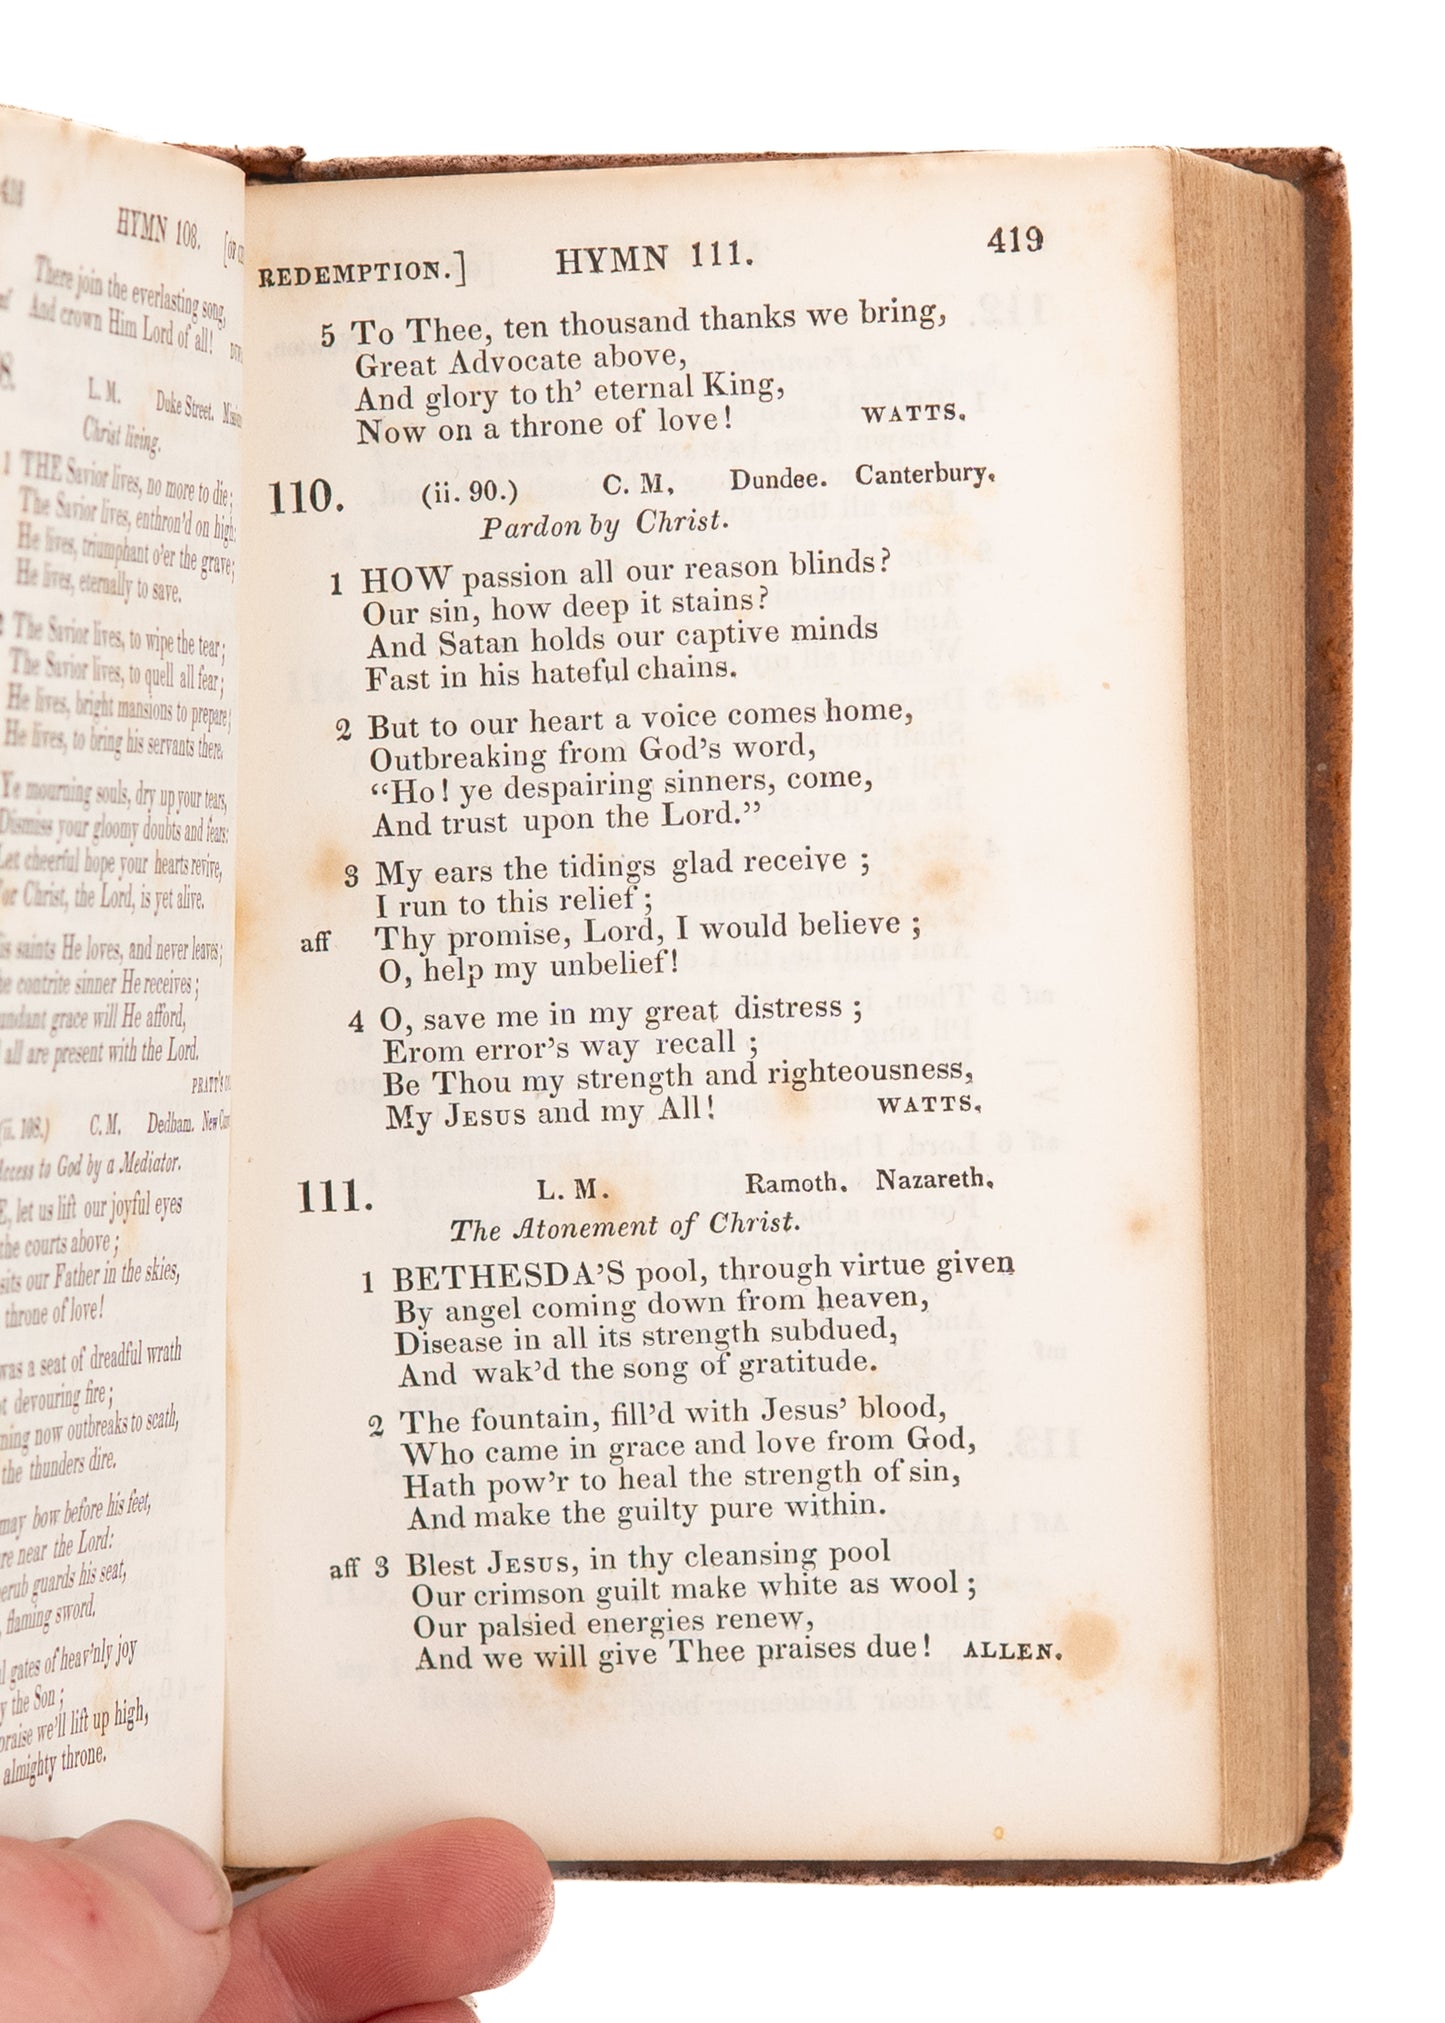 418
HYMN 108.
There join the everlasting song,
And crown Him Lord of all!
L. M. Duke Street.
Christ living.
1 THE Savior lives, no more to die;
The Savior lives, enthron'd on high;
He lives, triumphant o'er the grave;
He lives, eternally to save.
2 The Savior lives, to wipe the tear;
The Savior lives, to quell all fear;
He lives, bright mansions to prepare;
He lives, to bring his servants there.
Ye mourning souls, dry up your tears,
Dismiss your gloomy doubts and fears:
Let cheerful hope your hearts revive,
For Christ, the Lord, is yet alive.
saints He loves, and never leaves;
contrite sinner He receives;
grace will He afford,
all are present with the Lord.
(ii. 108.) C. M. Dedham.
Access to God by a Mediator.
let us lift our joyful eyes
the courts above;
sits our Father in the skies,
throne of love!
was a seat of dreadful wrath
devouring fire;
now outbreaks to scath,
the thunders dire.
may bow before his feet,
near the Lord:
guards his seat,
flaming sword.
gates of heav'nly joy
the Son;
praise we'll lift up high,
almighty throne.
REDEMPTION.] HYMN 111. 419
5 To Thee, ten thousand thanks we bring,
Great Advocate above,
And glory to th' eternal King,
Now on a throne of love! WATTS.
110. (ii. 90.) C. M. Dundee. Canterbury.
Pardon by Christ.
1 HOW passion all our reason blinds?
Our sin, how deep it stains?
And Satan holds our captive minds
Fast in his hateful chains.
2 But to our heart a voice comes home,
Outbreaking from God's word,
“Ho! ye despairing sinners, come,
And trust upon the Lord.”
3 My ears the tidings glad receive ;
I run to this relief ;
aff Thy promise, Lord, I would believe ;
O, help my unbelief!
4 O, save me in my great distress ;
Erom error's way recall ;
Be Thou my strength and righteousness,
My JESUS and my All! WATTS.
111. L. M. Ramoth. Nazareth.
The Atonement of Christ.
1 BETHESDA'S pool, through virtue given
By angel coming down from heaven,
Disease in all its strength subdued,
And wak'd the song of gratitude.
2 The fountain, fill'd with Jesus' blood,
Who came in grace and love from God,
Hath pow'r to heal the strength of sin,
And make the guilty pure within.
aff 3 Blest JESUS, in thy cleansing pool
Our crimson guilt make white as wool ;
Our palsied energies renew,
And we will give Thee praises due! ALLEN.